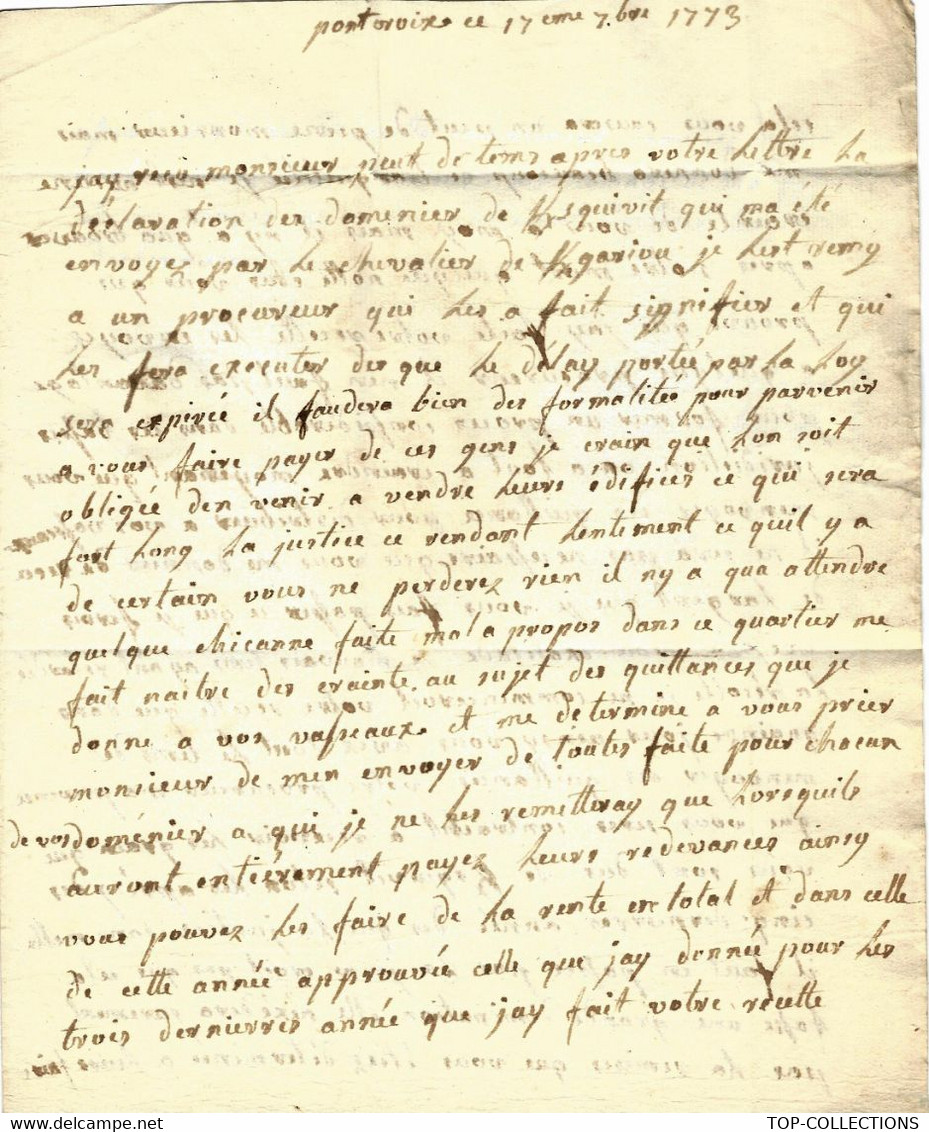 pontcroix ce 17 eme 7.bre 1773
jay reçu monsieur peut de tems apres votre lettre la
déclaration des domenier de K/squivit qui ma été
envoyez par le chevalier de K/gariou je lest remy
a un procureur qui les a fait signifier et qui
les fera executer des que le délay portée par la loy
sera expirée il faudera bien des formalités pour parvenir
a vous faire payer de ces gens je crain que lon soit
obligée den venir a vendre leurs édifices ce qui sera
fort long la justice ce rendant lentement ce quil y a
de certain vous ne perderez rien il ny a qua attendre
quelque chicanne faite mal a propos dans ce quartier me
fait naitre des crainte au sujet des quittances que je
donne a vos vasseaux et me determine a vous prier
monsieur de men envoyer de toutes faite pour chacun
de vos doménier a qui je ne les remetteray que lorsquils
auront entiérement payez leurs redevances ainsy
vous pouvez les faire de la rente en total et dans celle
de cette année approuvée celle que jay donnée pour les
trois dernierres année que jay fait votre recette
TOP-COLLECTIONS